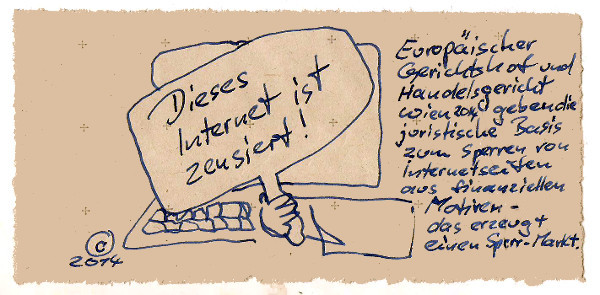 Dieses
Internet ist
zensiert!
Europäischer
Gerichtshof und
Handelsgericht
Wien 2014 geben die
juristische Basis
zum Sperren von
Internetseiten
aus finanziellen
Motiven -
das erzeugt
einen Sperr-Markt.
©
2014